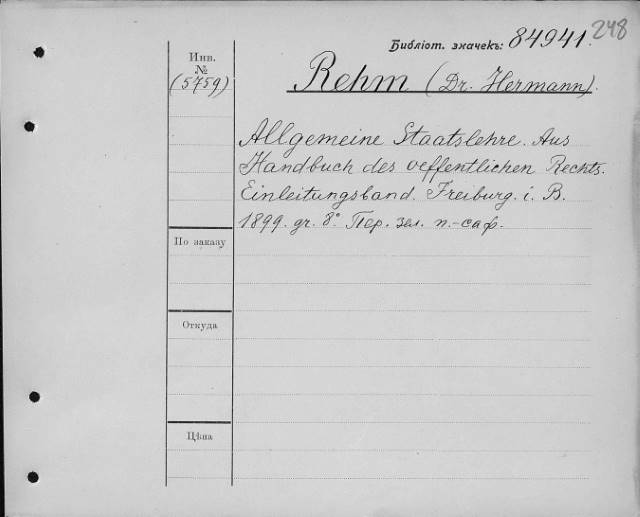 248
Библіот. значекъ: 84941.
Инв.
№
(5759)
Rehm (Dr. Hermann).
Allgemeine Staatslehre. Aus
Handbuch des oeffentlichen Rechts.
Einleitungsband. Freiburg. i. B.
1899. gr. 8° Пер. зел. п.-саф.
По заказу
Откуда
Цѣна